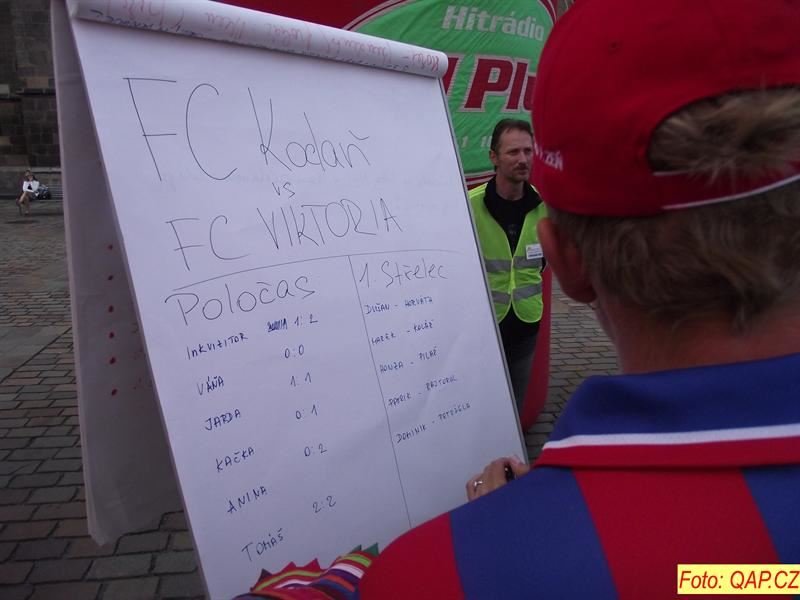 Hitrádio
Plu
FC Kodaň
vs
FC VIKTORIA
Poločas
1. Střelec
INKVIZITOR 1:2
DUŠAN - HORVÁTH
0:0
MAREK - KOLÁŘ
VÁŇA 1:1
HONZA - PILAŘ
JARDA 0:1
PATRIK - RAJTORAL
KAČKA 0:2
DOMINIK - PETRŽELA
ANINA
TOMÁŠ 2:2
Foto: QAP.CZ